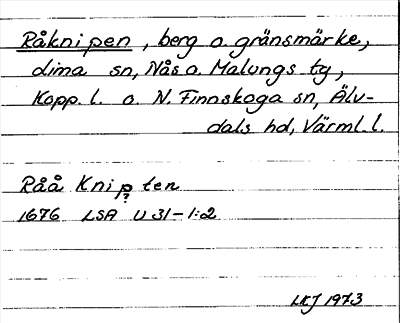 Råknipen, berg o. gränsmärke,
dima sn, Nås o. Malungs tg,
Kopp. l. o. N. Finnskoga sn, Älv-
dals hd, Värml. l.
Råå Knipten
?
1676 LSA U 31-1:2
LKJ 1973